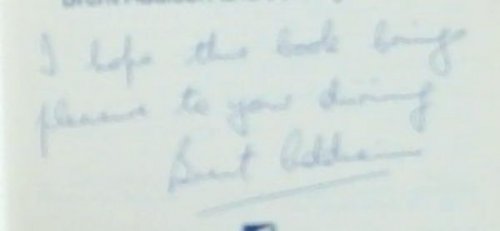 I hope this book brings
pleasure to your driving
Brent Addison